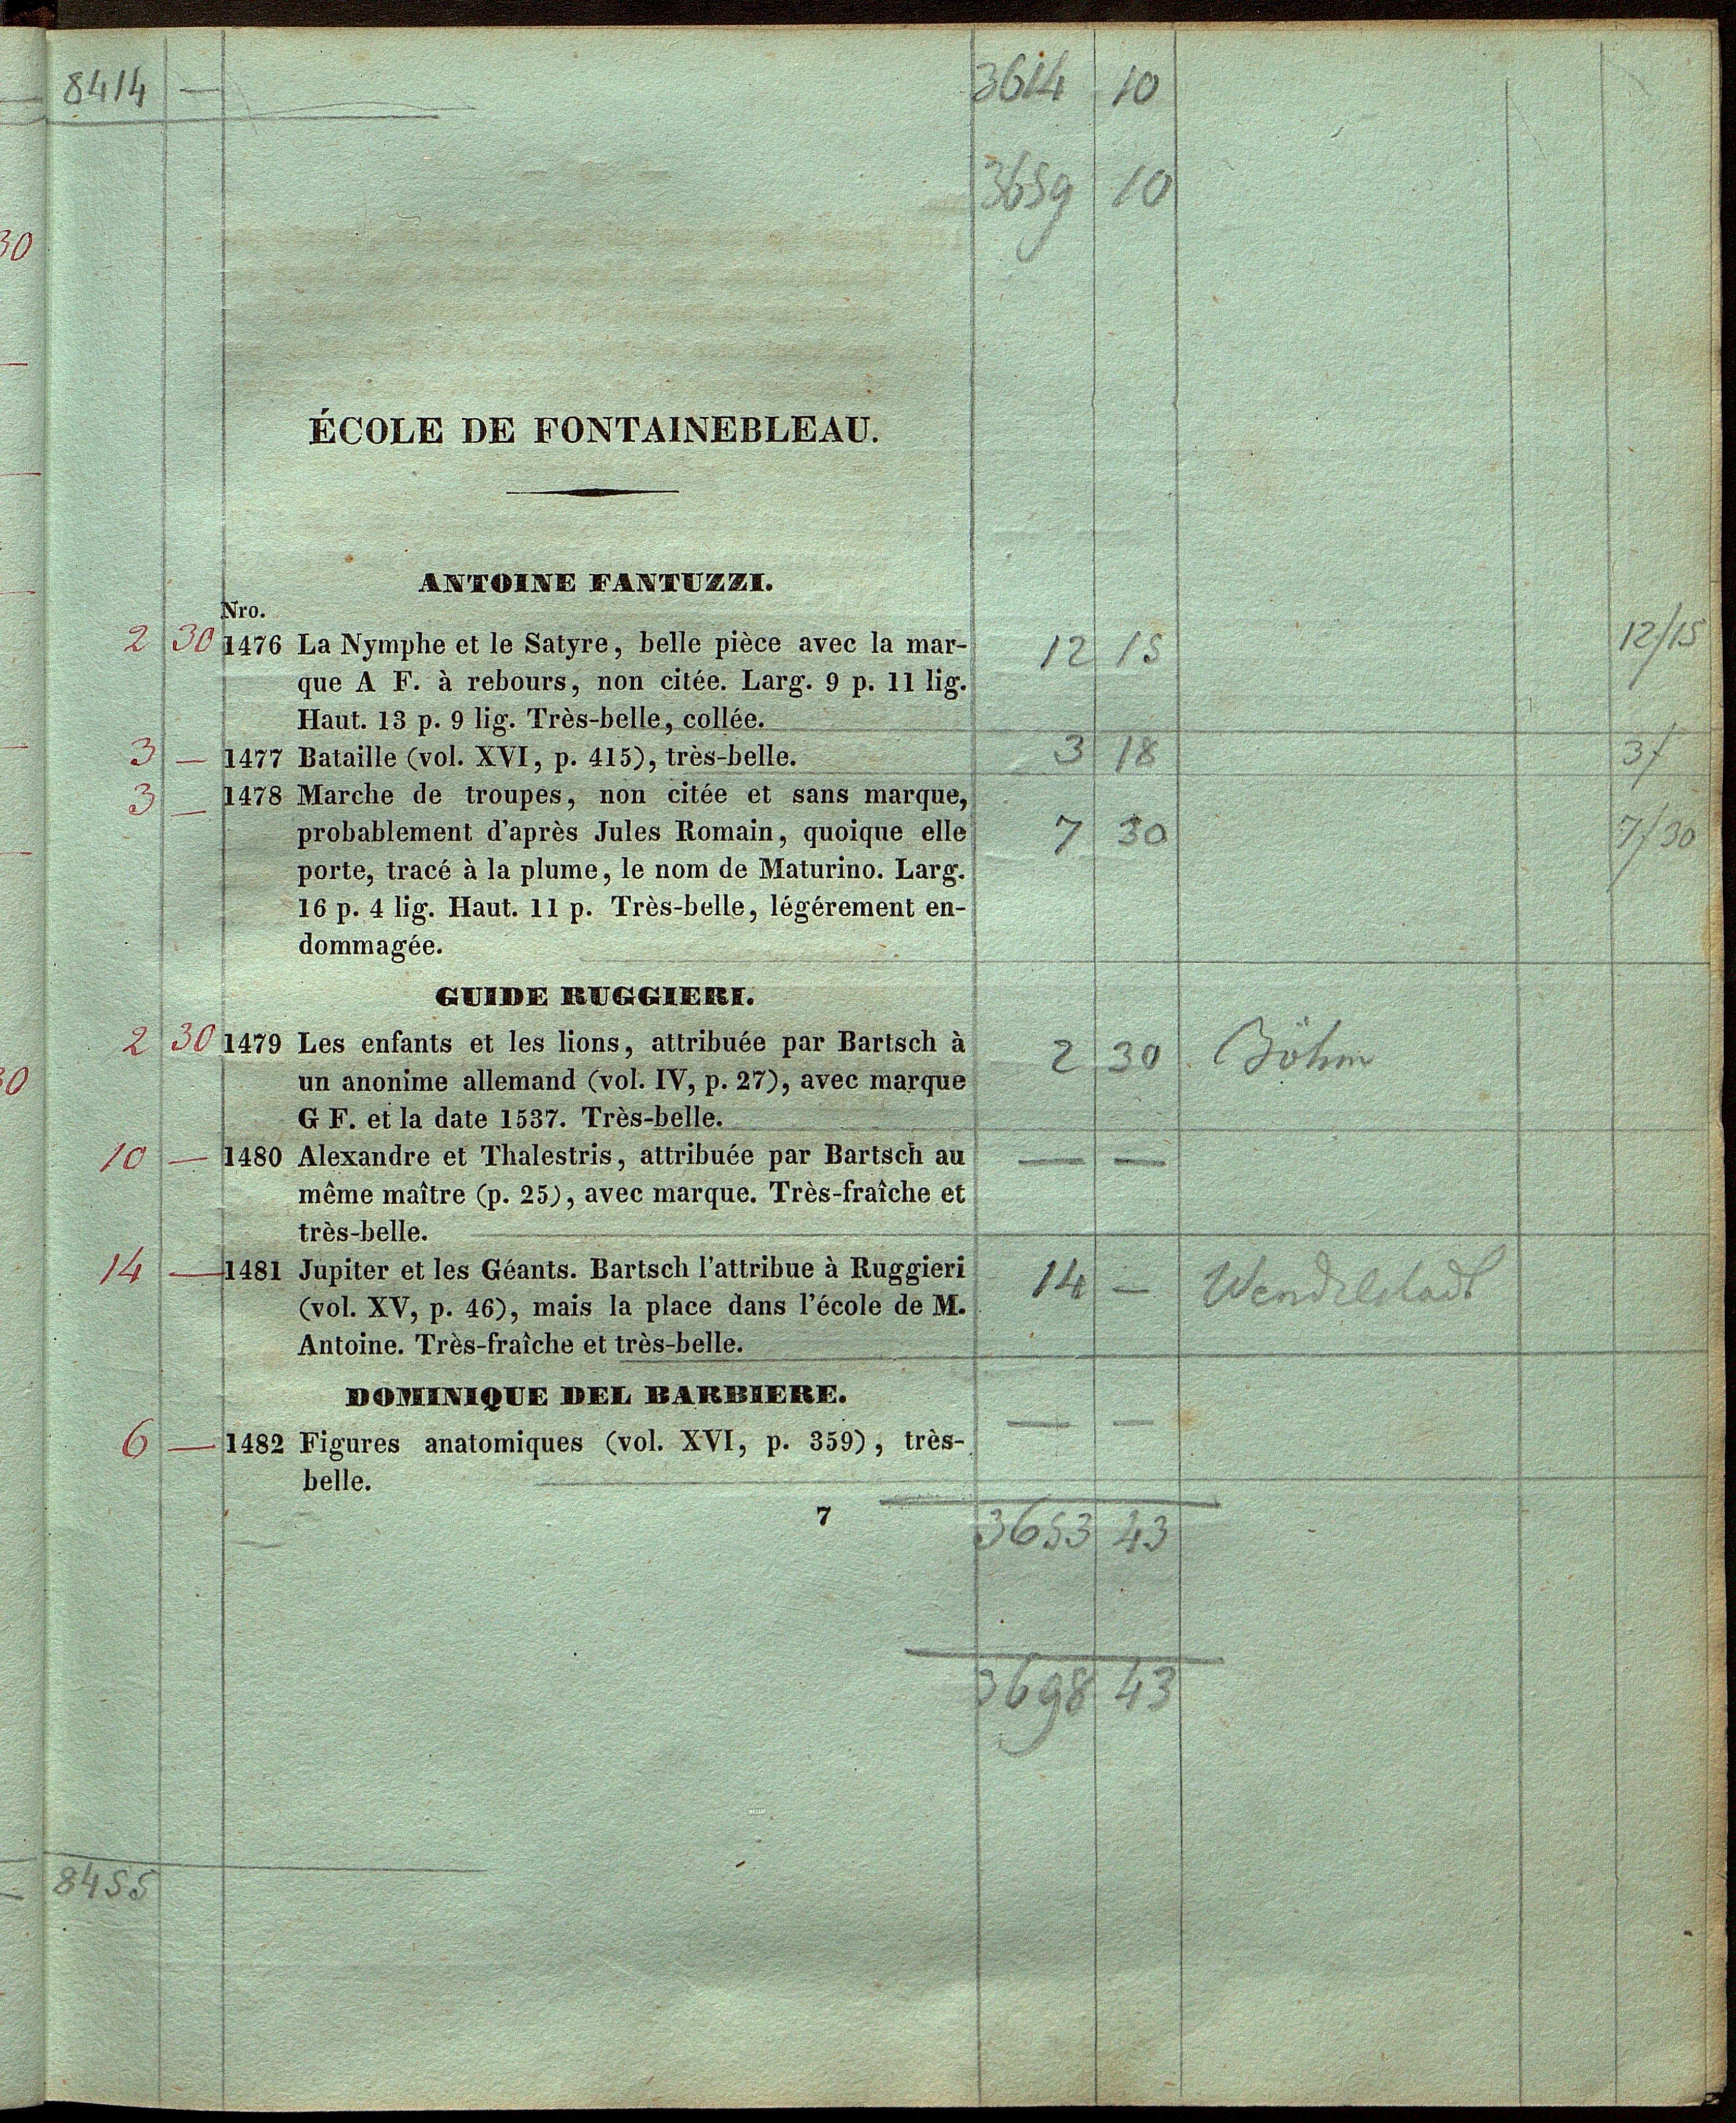 8414 — 3614 10
3659 10
30
ÉCOLE DE FONTAINEBLEAU.
ANTOINE FANTUZZI.
Nro.
2 30 1476 La Nymphe et le Satyre, belle pièce avec la mar- 12 15 12/15
que A F. à rebours, non citée. Larg. 9 p. 11 lig.
Haut. 13 p. 9 lig. Très-belle, collée.
3 — 1477 Bataille (vol. XVI, p. 415), très-belle. 3 18
3 — 1478 Marche de troupes, non citée et sans marque,
probablement d'après Jules Romain, quoique elle 7 30 7/30
porte, tracé à la plume, le nom de Maturino. Larg.
16 p. 4 lig. Haut. 11 p. Très-belle, légérement en-
dommagée.
GUIDE RUGGIERI.
2 30 1479 Les enfants et les lions, attribuée par Bartsch à 2 30 Böhm
un anonime allemand (vol. IV, p. 27), avec marque
G F. et la date 1537. Très-belle.
10 — 1480 Alexandre et Thalestris, attribuée par Bartsch au — —
même maître (p. 25), avec marque. Très-fraîche et
très-belle.
14 — 1481 Jupiter et les Géants. Bartsch l'attribue à Ruggieri 14 — Wendelstadt
(vol. XV, p. 46), mais la place dans l'école de M.
Antoine. Très-fraîche et très-belle.
DOMINIQUE DEL BARBIERE.
6 — 1482 Figures anatomiques (vol. XVI, p. 359), très- — —
belle.
7
3653 43
3698 43
8455